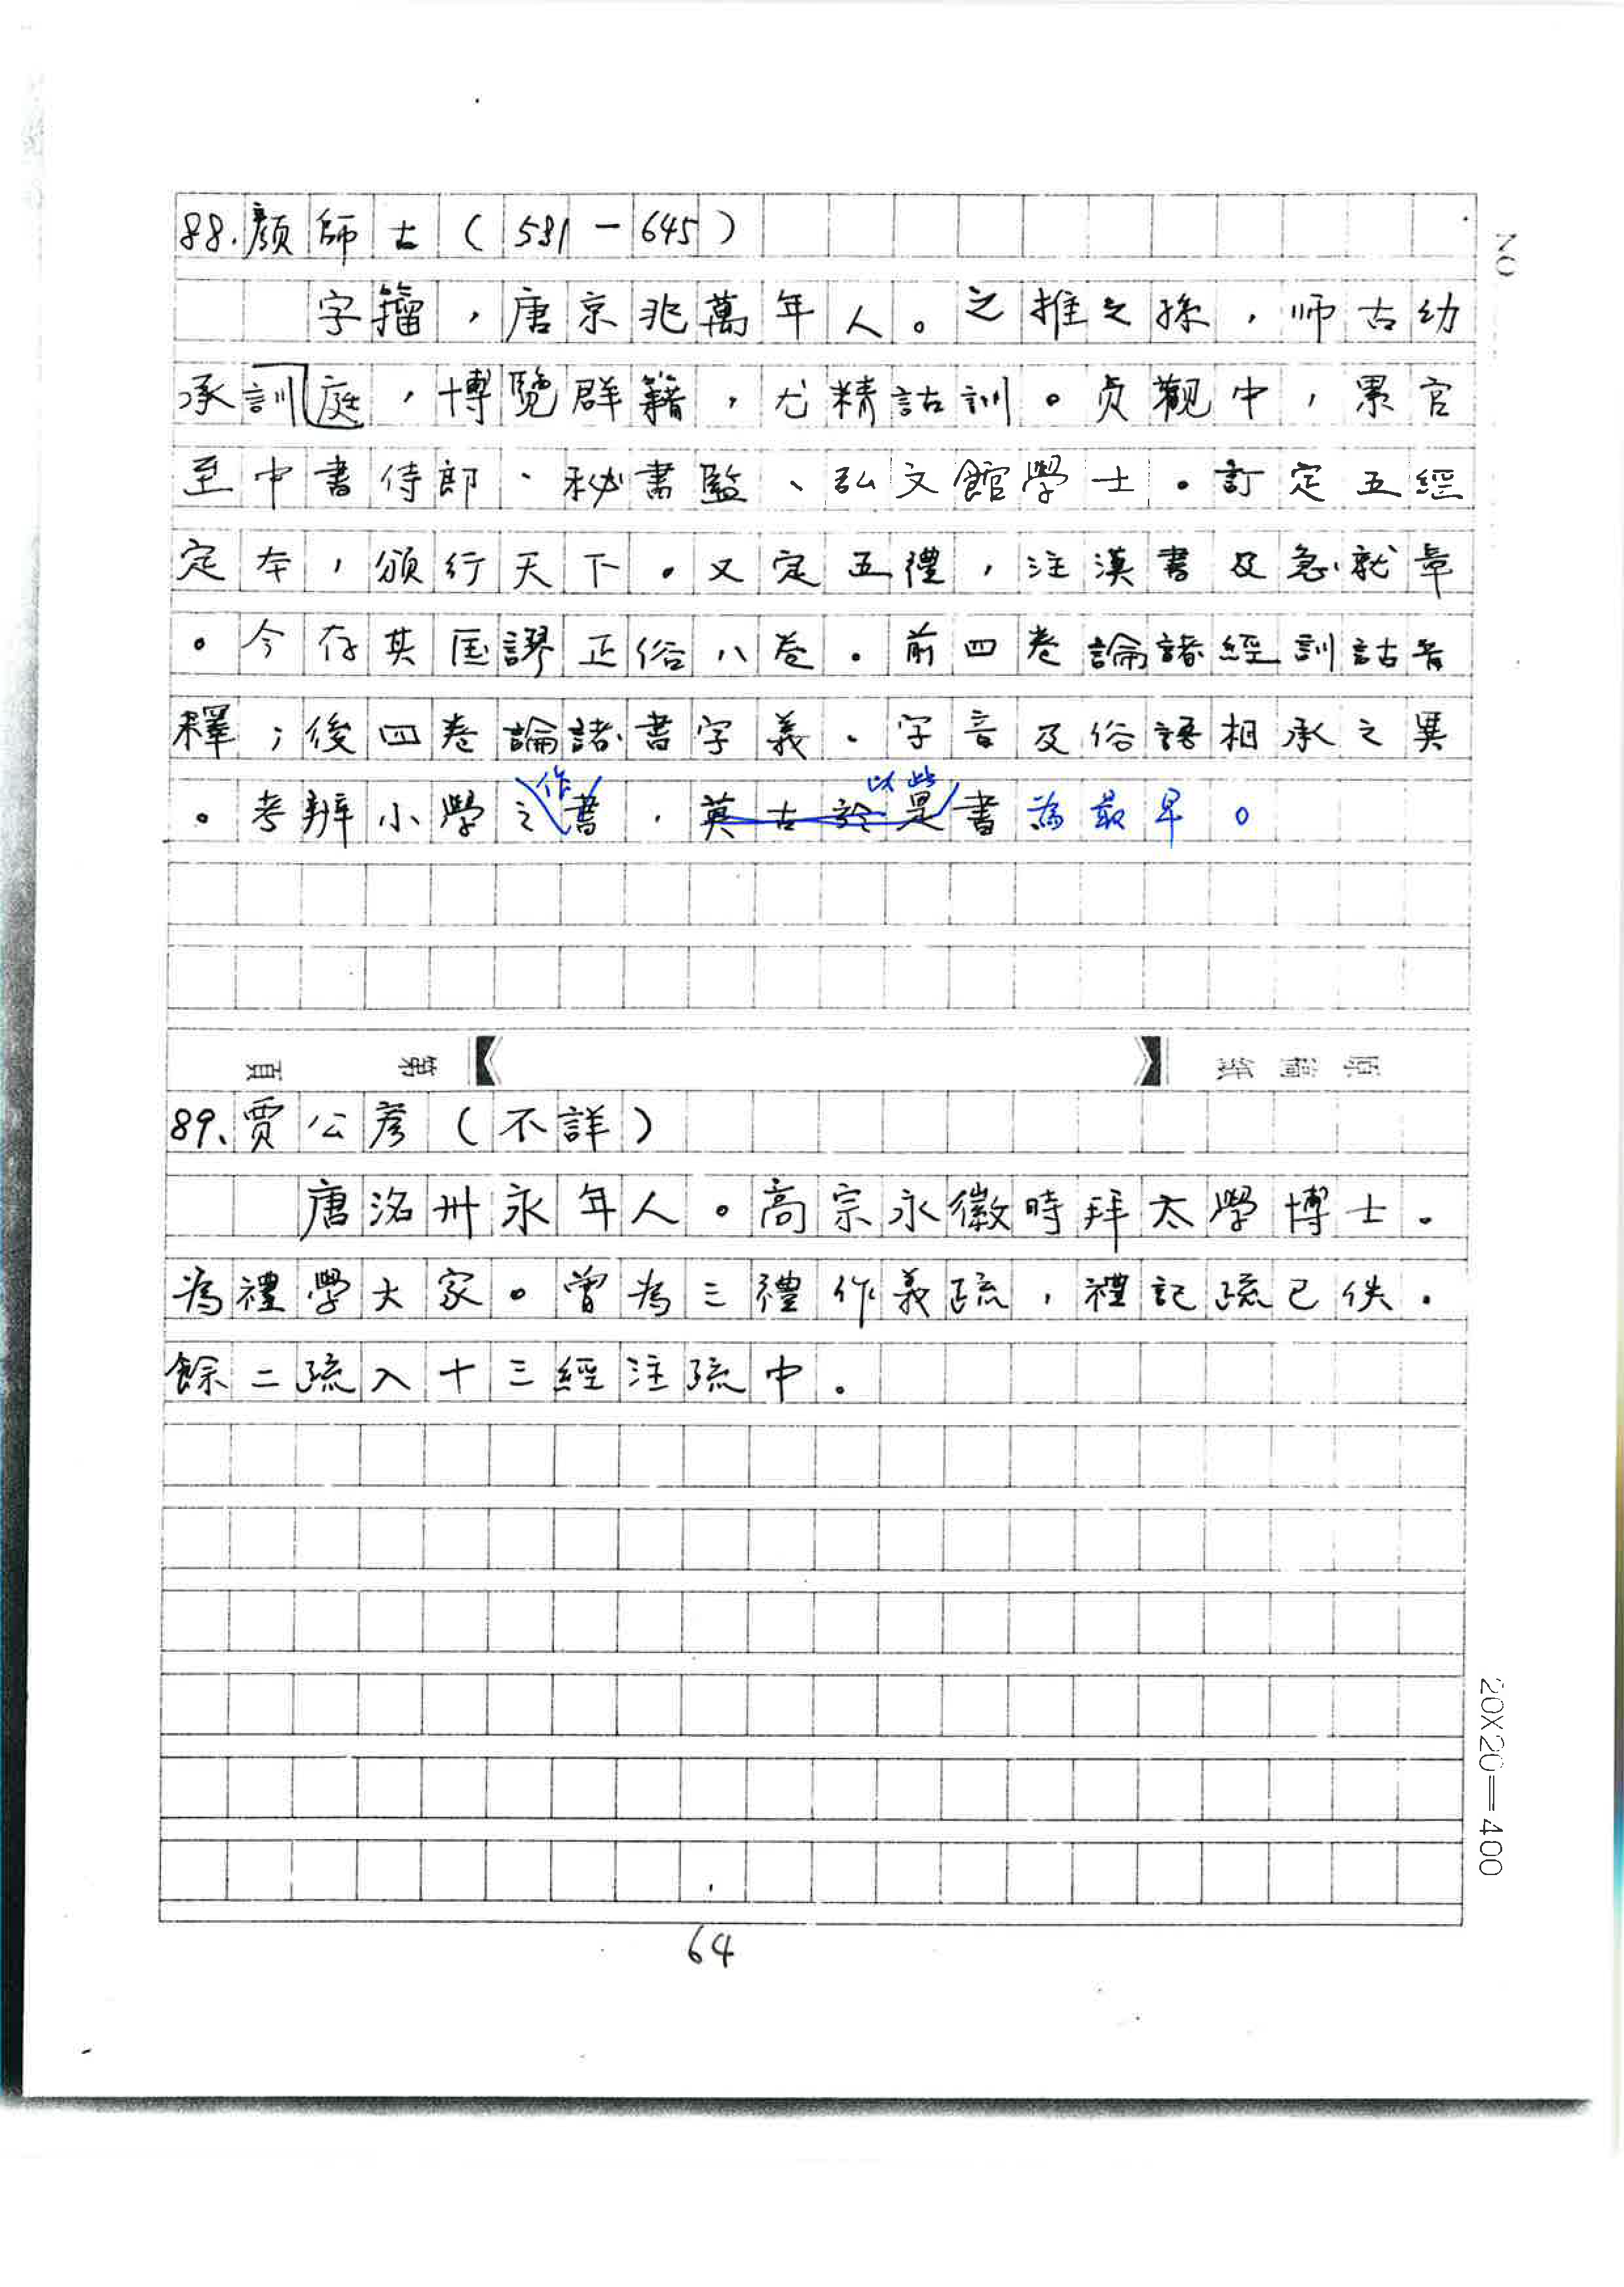 88.顏師古(581-645)
字籀,唐京兆萬年人。之推之孫,師古幼
承訓庭,博覽群籍,尤精詁訓。貞觀中,累官
至中書侍郎、秘書監、弘文館學士。訂定五經
定本,頒行天下。又定五禮,注漢書及急就章
。今存其匡謬正俗八卷。前四卷論諸經訓詁音
釋;後四卷論諸書字義。字音及俗語相承之異
作 以此
。考辨小學之書,莫古於是書為最早。
原稿紙 第 頁
89、賈公彥(不詳)
唐洺州永年人。高宗永徽時拜太學博士。
為禮學大家。曾為三禮作義疏,禮記疏已佚。
餘二疏入十三經注疏中。
NO
20X20=400
64